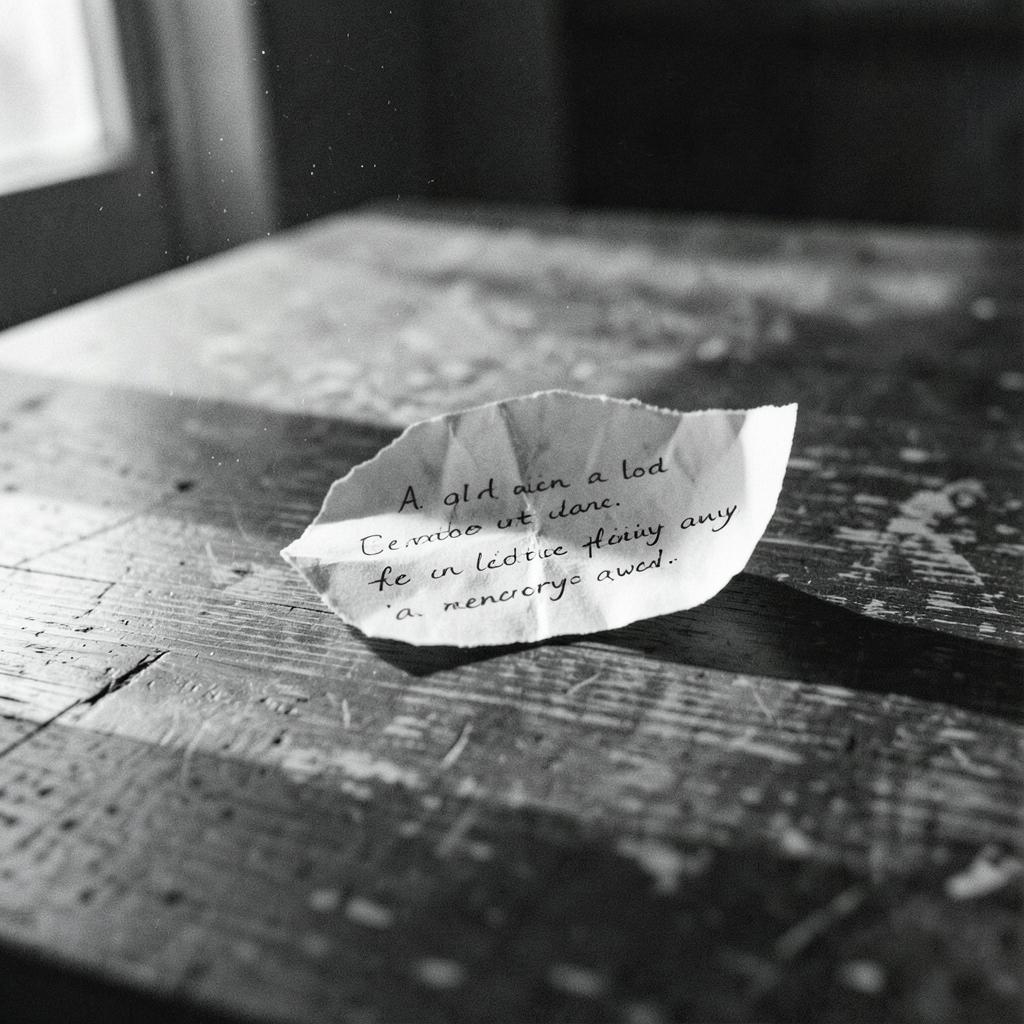 A. ald aicn a lod
Cematbo ut danc.
fe in lėdtice flöiiiy any
'a. mencoryo awed..